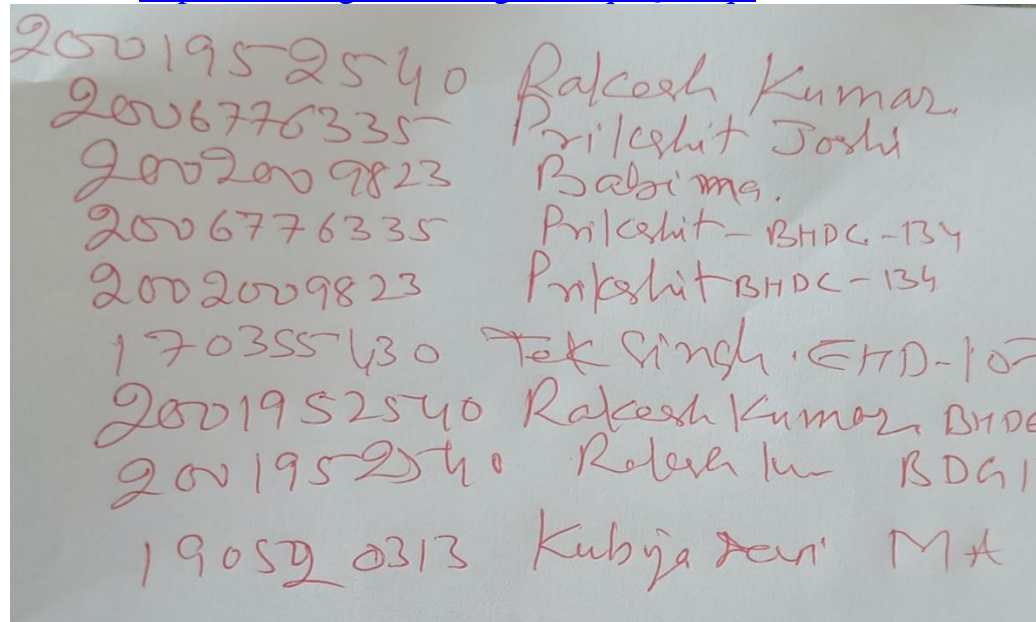 2001952540 Rakesh Kumar.
2006776335 Prikshit Joshi
2002009823 Babima.
2006776335 Prikshit - BHDC - 134
2002009823 Prikshit BHDC - 134
170355430 Tek Singh. EHD - 10
2001952540 Rakesh Kumar BHDC
2001952540 BDG1
190520313 Kubja Devi MA